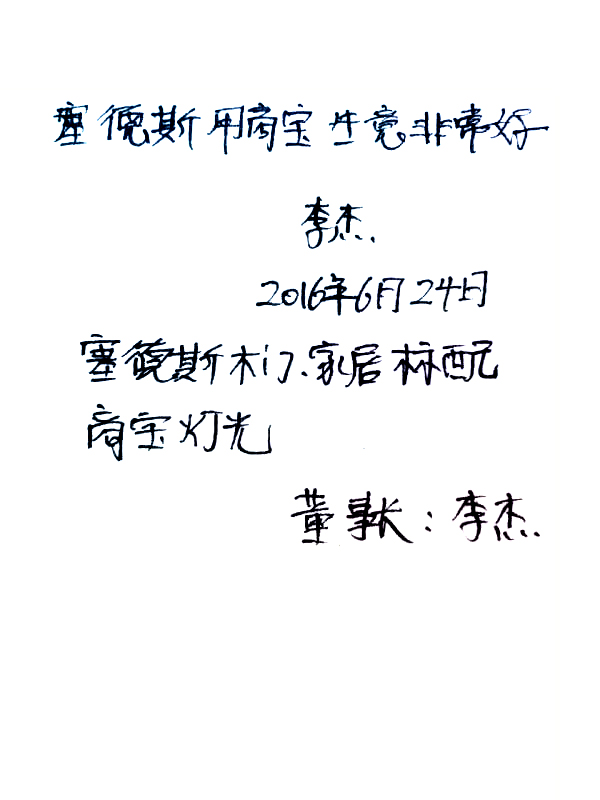 塞德斯用商宝生意非常好
李杰.
2016年6月24日
塞德斯木门.家居标配
商宝灯光
董事长:李杰.